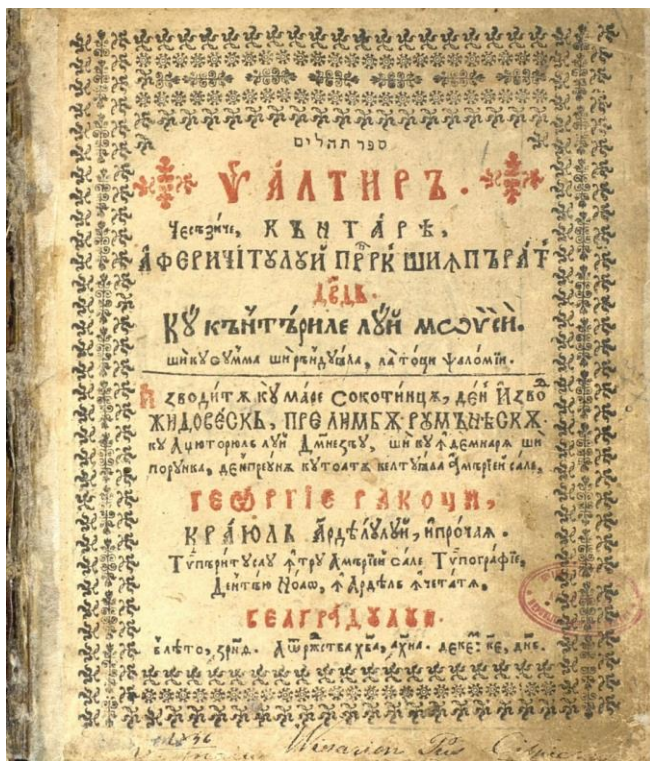 ספר תהלים
Ѱ́АЛТИРЪ.
Чесѣзи́че, КѪНТА́РѢ,
А̀ФЕРИЧИ́ТꙋЛꙋЙ ПРРКꙊ ШИꙞПЪРА́Т
ДВДЬ.
Кꙋ къ́нтъриле лꙋй мѡѷсѝ.
ши кꙋ сꙋ́мма ши рѫндꙋѧла, ла тоци ѱаломїи.
Изводи́тѫ кꙋ маре сокоти́нцѫ, деѝн Извод
ЖИДОВЕ́СКЬ, ПРЕ ЛИМБѪ РꙋМѪНѢСКѪ
кꙋ Ацюторюль лꙋй Дмнезъꙋ, ши кꙋ ꙟдемнарѧ ши
порꙋнка, деѝнпреꙋнѫ кꙋ тоатѫ келтꙋѧла Ꙟмърїеѝ сале,
ГЕѠ́РГІЄ РАКОЦИ,
КРА́ЮЛЬ Ардѣ́лꙋлꙋй, ѝпро́чаѧ.
Тѷпъри́тꙋсаꙋ ꙟтрꙋ Ꙟмърїеѝ сале Тѷпогра́фїе,
Деѝнтъю Ноаѡ, ꙟ Ардѣль ꙟ четатѧ,
БЕЛГРА́ДꙋЛꙋЙ.
Влѣто, ҂зрн҃ѧ. Аѿржⷭтва хв҃а, ҂ахн҃а. деке҃: ке҃, дн҃ь.